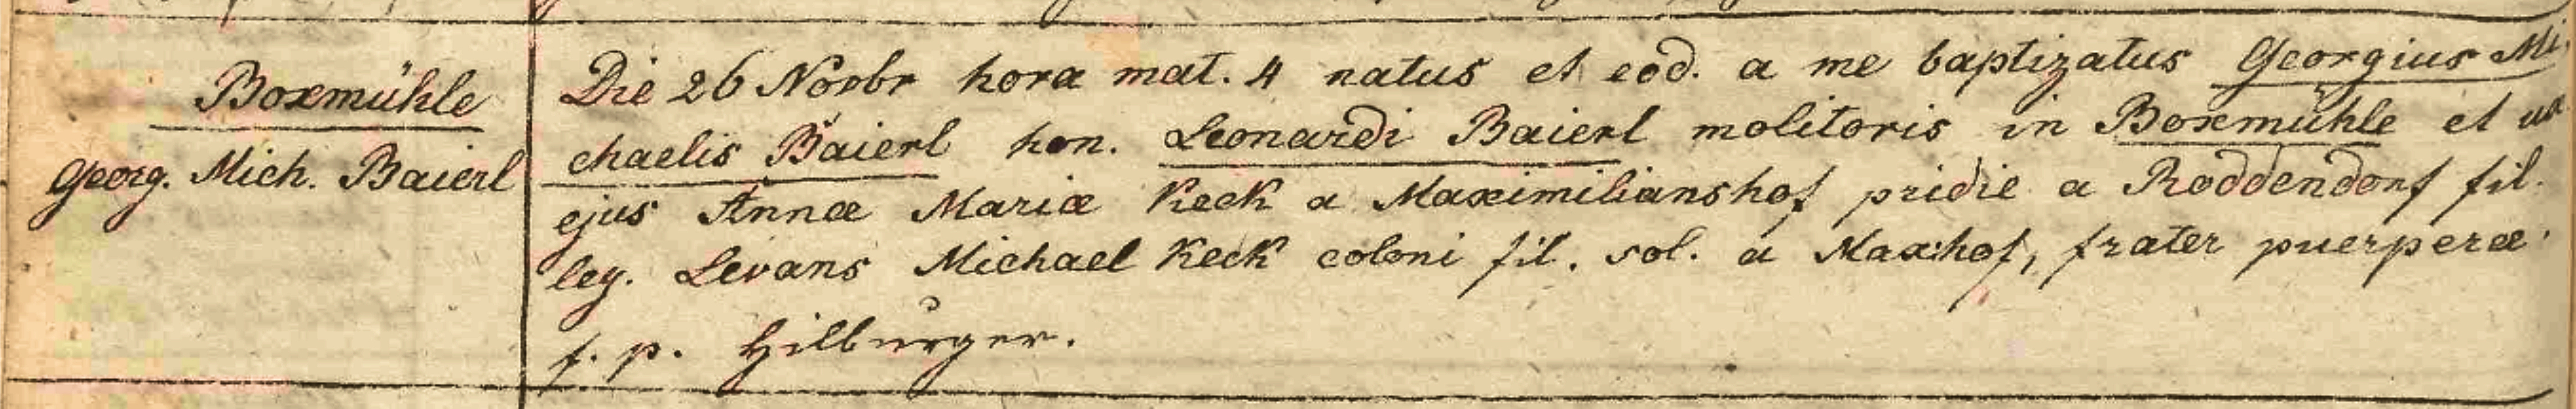 Boxmühle
Georg. Mich. Baierl
Die 26 Novbr hora mat. 4 natus et eod. a me baptizatus Georgius Mi,
chaelis Baierl hon. Leonardi Baierl molitoris in Boxmühle et ux
ejus Annæ Mariæ Keck a Maximilianshof pridie a Roddendorf fil.
leg. Levans Michael Keck coloni fil. sol. a Maxhof, frater puerperæ.
f. p. Hilburger.